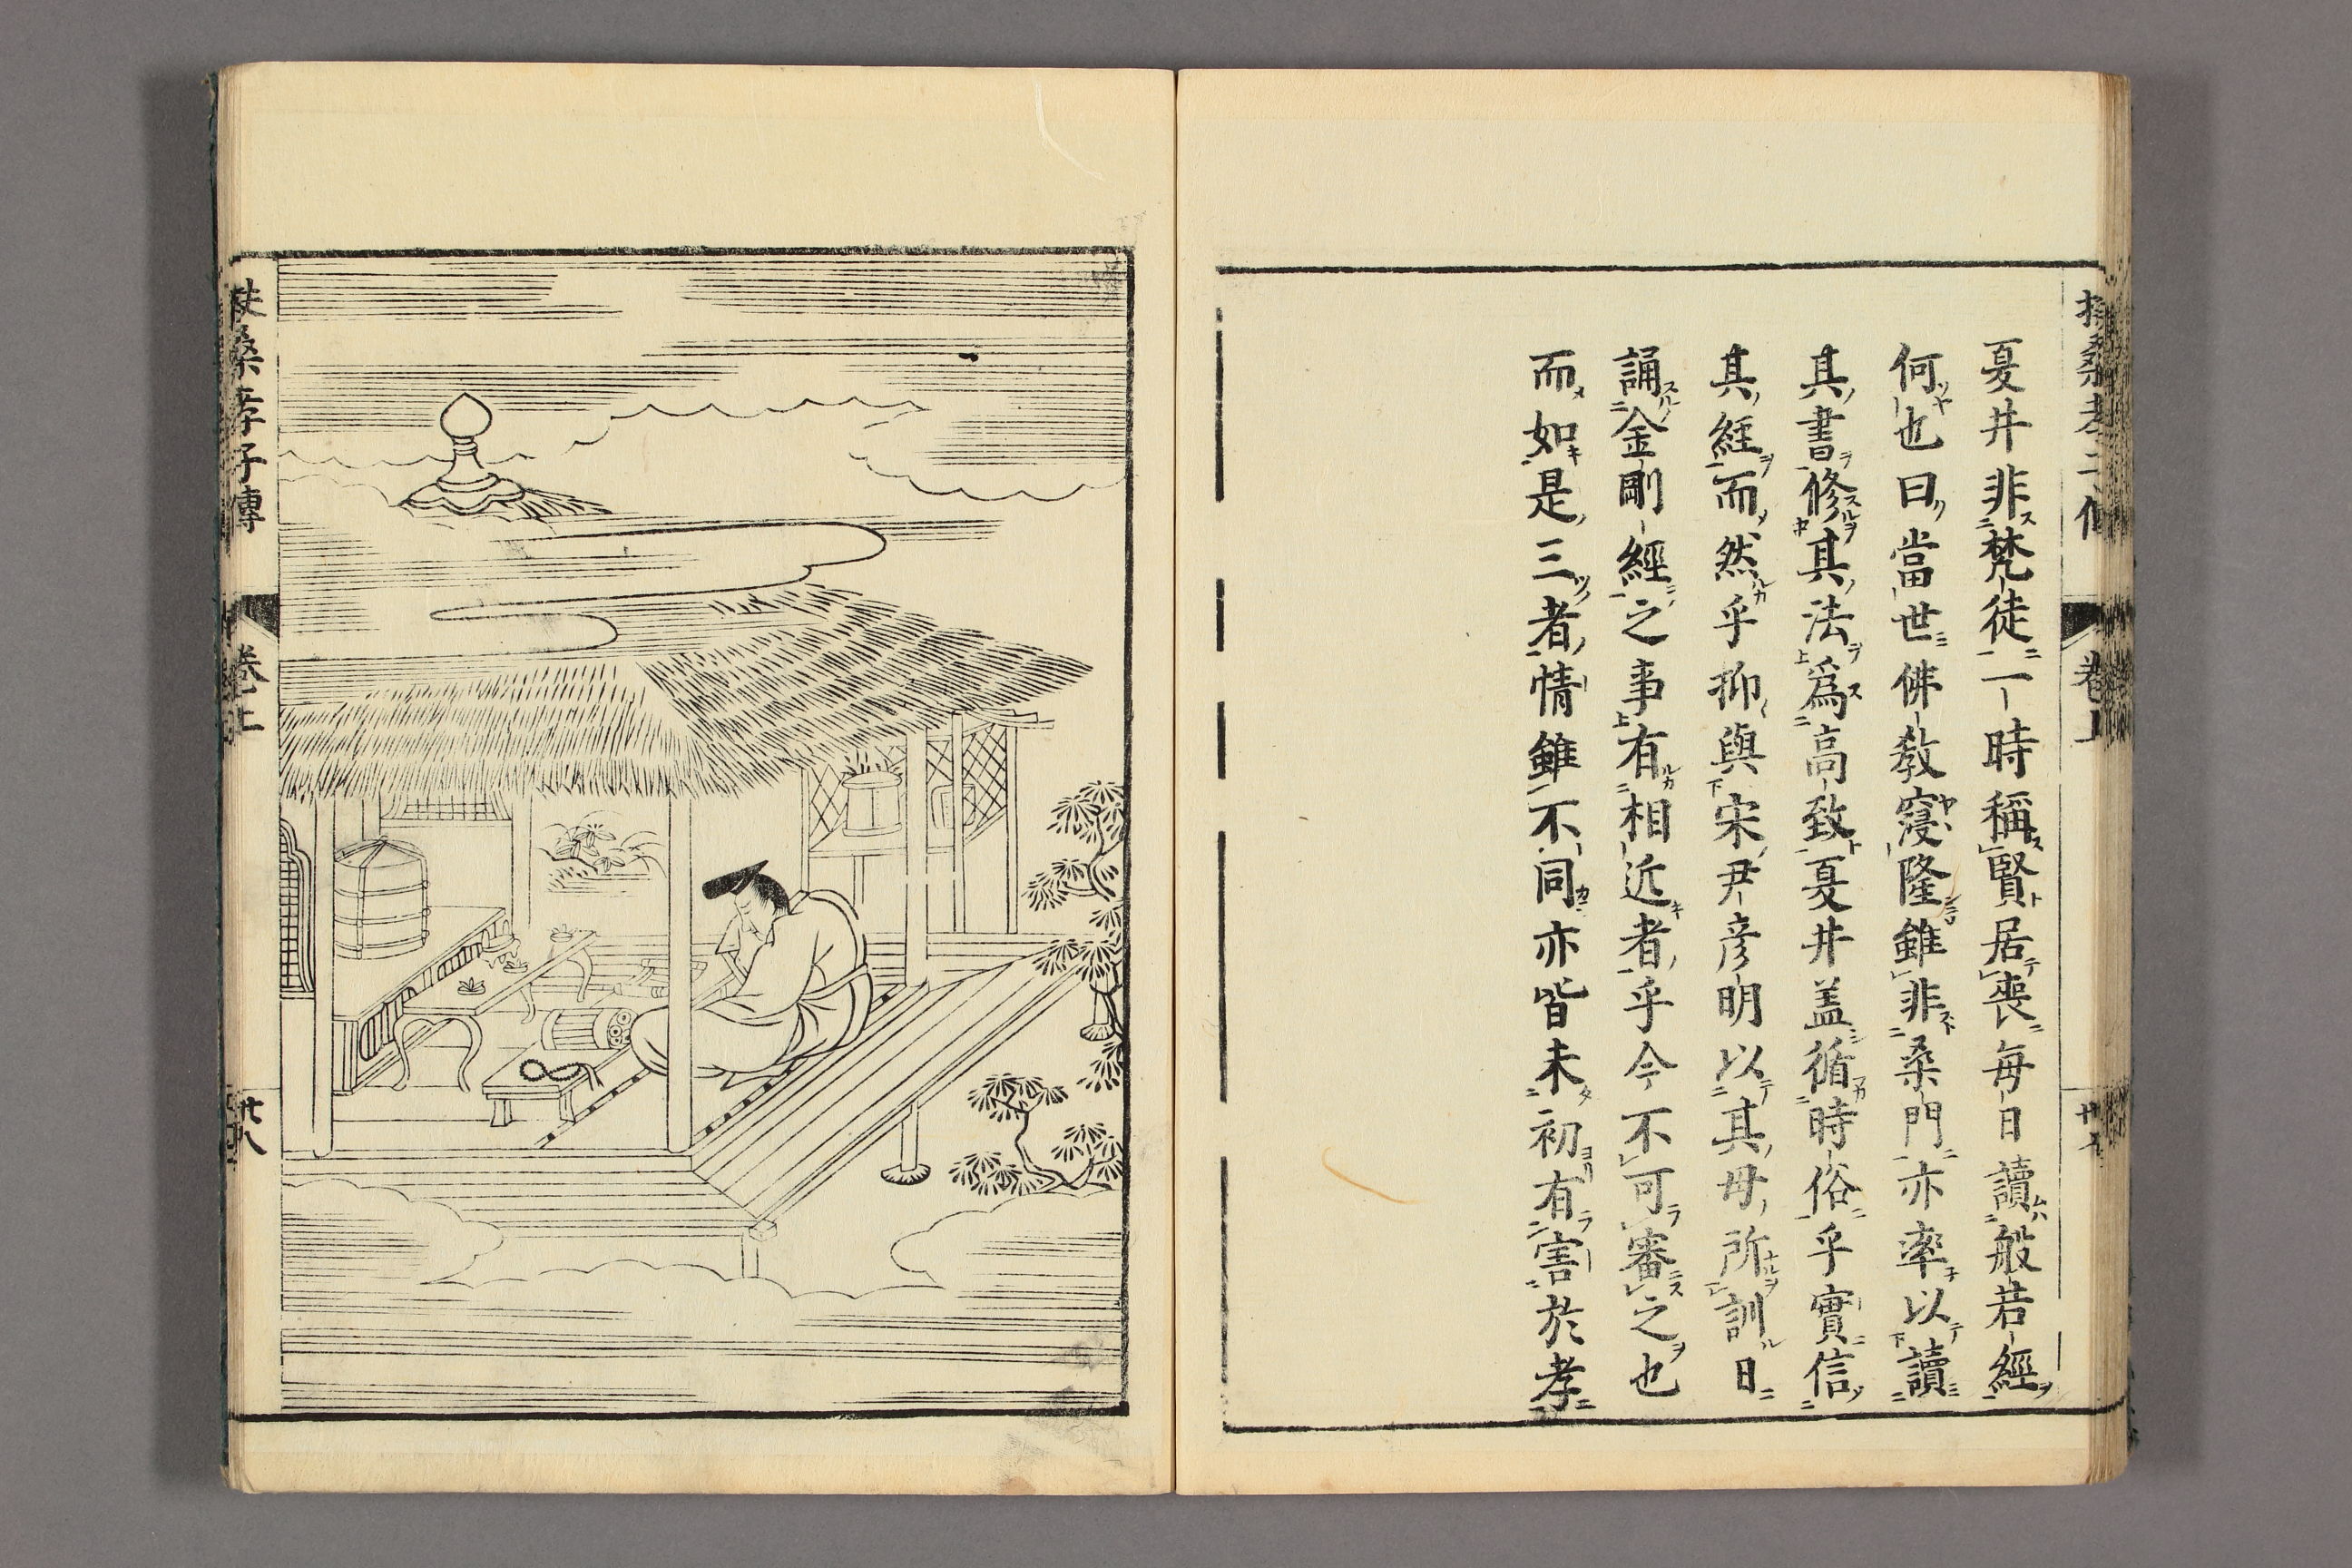 夏井非梵徒一時稱賢居喪每日讀般若經
何也曰當世佛教寖隆雖非桑門亦率以讀
其書修其法爲高致夏井盖循時俗乎實信
其經而然乎抑與宋尹彦明以其母所訓日
誦金剛經之事有相近者乎今不可審之也
而如是三者情雖不同亦皆未初有害於孝
扶桑孝子傳
卷上
廿八